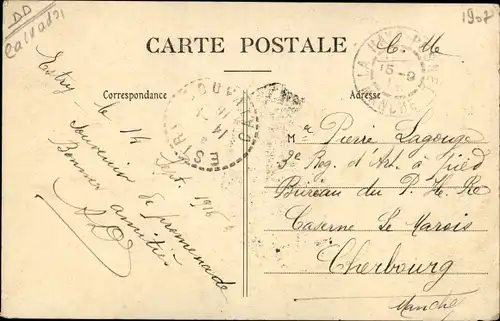 DD
Calvados
1907
CARTE POSTALE
C. M
Correspondance
Adresse
Estry le 14 Sbt. 1916
Souvenir de promenade
Bonnes amitiés
CALVADOS
14
ESTRY
LA HAYE
15-9
MANCHE
Mr Pierre Lagouge
3e Reg. d'Art. à pied
Bureau du P. He. Re
Caserne Le Marois
Cherbourg
Manche